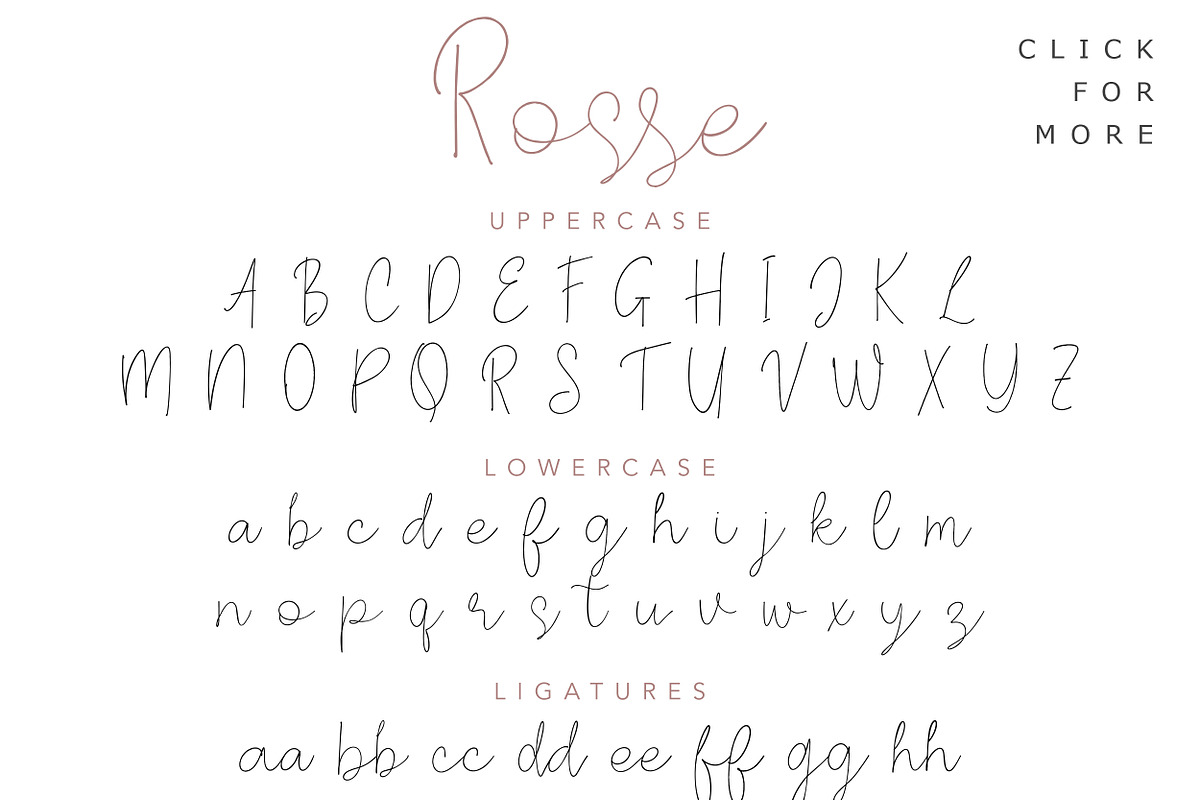 Rosse
CLICK
FOR
MORE
UPPERCASE
A B C D E F G H I J K L
M N O P Q R S T U V W X Y Z
LOWERCASE
a b c d e f g h i j k l m
n o p q r s t u v w x y z
LIGATURES
aa bb cc dd ee ff gg hh